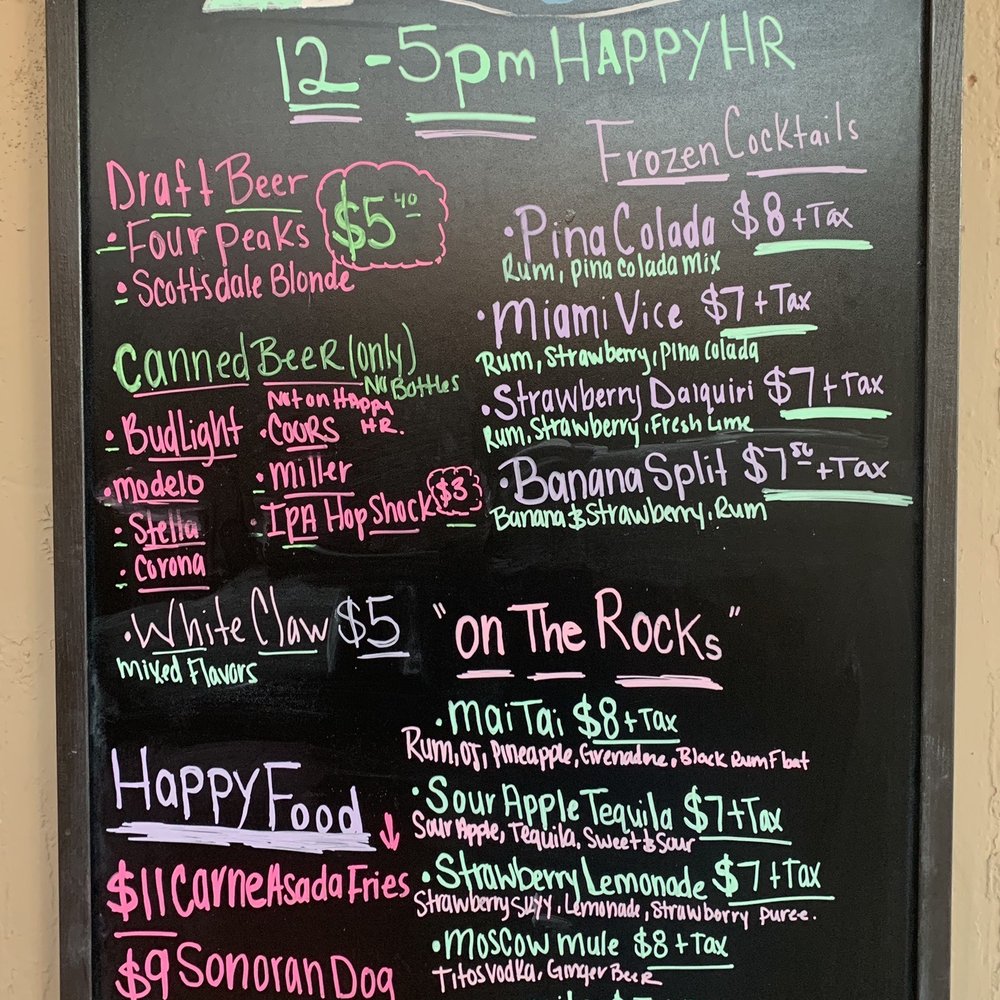 12-5pm HAPPY HR
Draft Beer
• Four peaks
• Scottsdale Blonde
$5 40
Canned Beer (only)
No Bottles
• BudLight
• modelo
• Stella
• Corona
Not on Happy
HR.
• COORS
• miller
• IPA Hop Shock $3
• White Claw $5
mixed Flavors
Happy Food
$11 Carne Asada Fries
$9 Sonoran Dog
Frozen Cocktails
• Pina Colada $8 + Tax
Rum, pina colada mix
• Miami Vice $7 + Tax
Rum, Strawberry, Pina colada
• Strawberry Daiquiri $7 + Tax
Rum, Strawberry, Fresh Lime
• Banana Split $7 50 + Tax
Banana & Strawberry, Rum
"on The Rocks"
• mai Tai $8 + Tax
Rum, OJ, Pineapple, Grenadene, Black Rum Float
• Sour Apple Tequila $7 + Tax
Sour Apple, Tequila, Sweet & Sour
• Strawberry Lemonade $7 + Tax
Strawberry, Lemonade, Strawberry puree.
• moscow mule $8 + Tax
Titos vodka, Ginger Beer